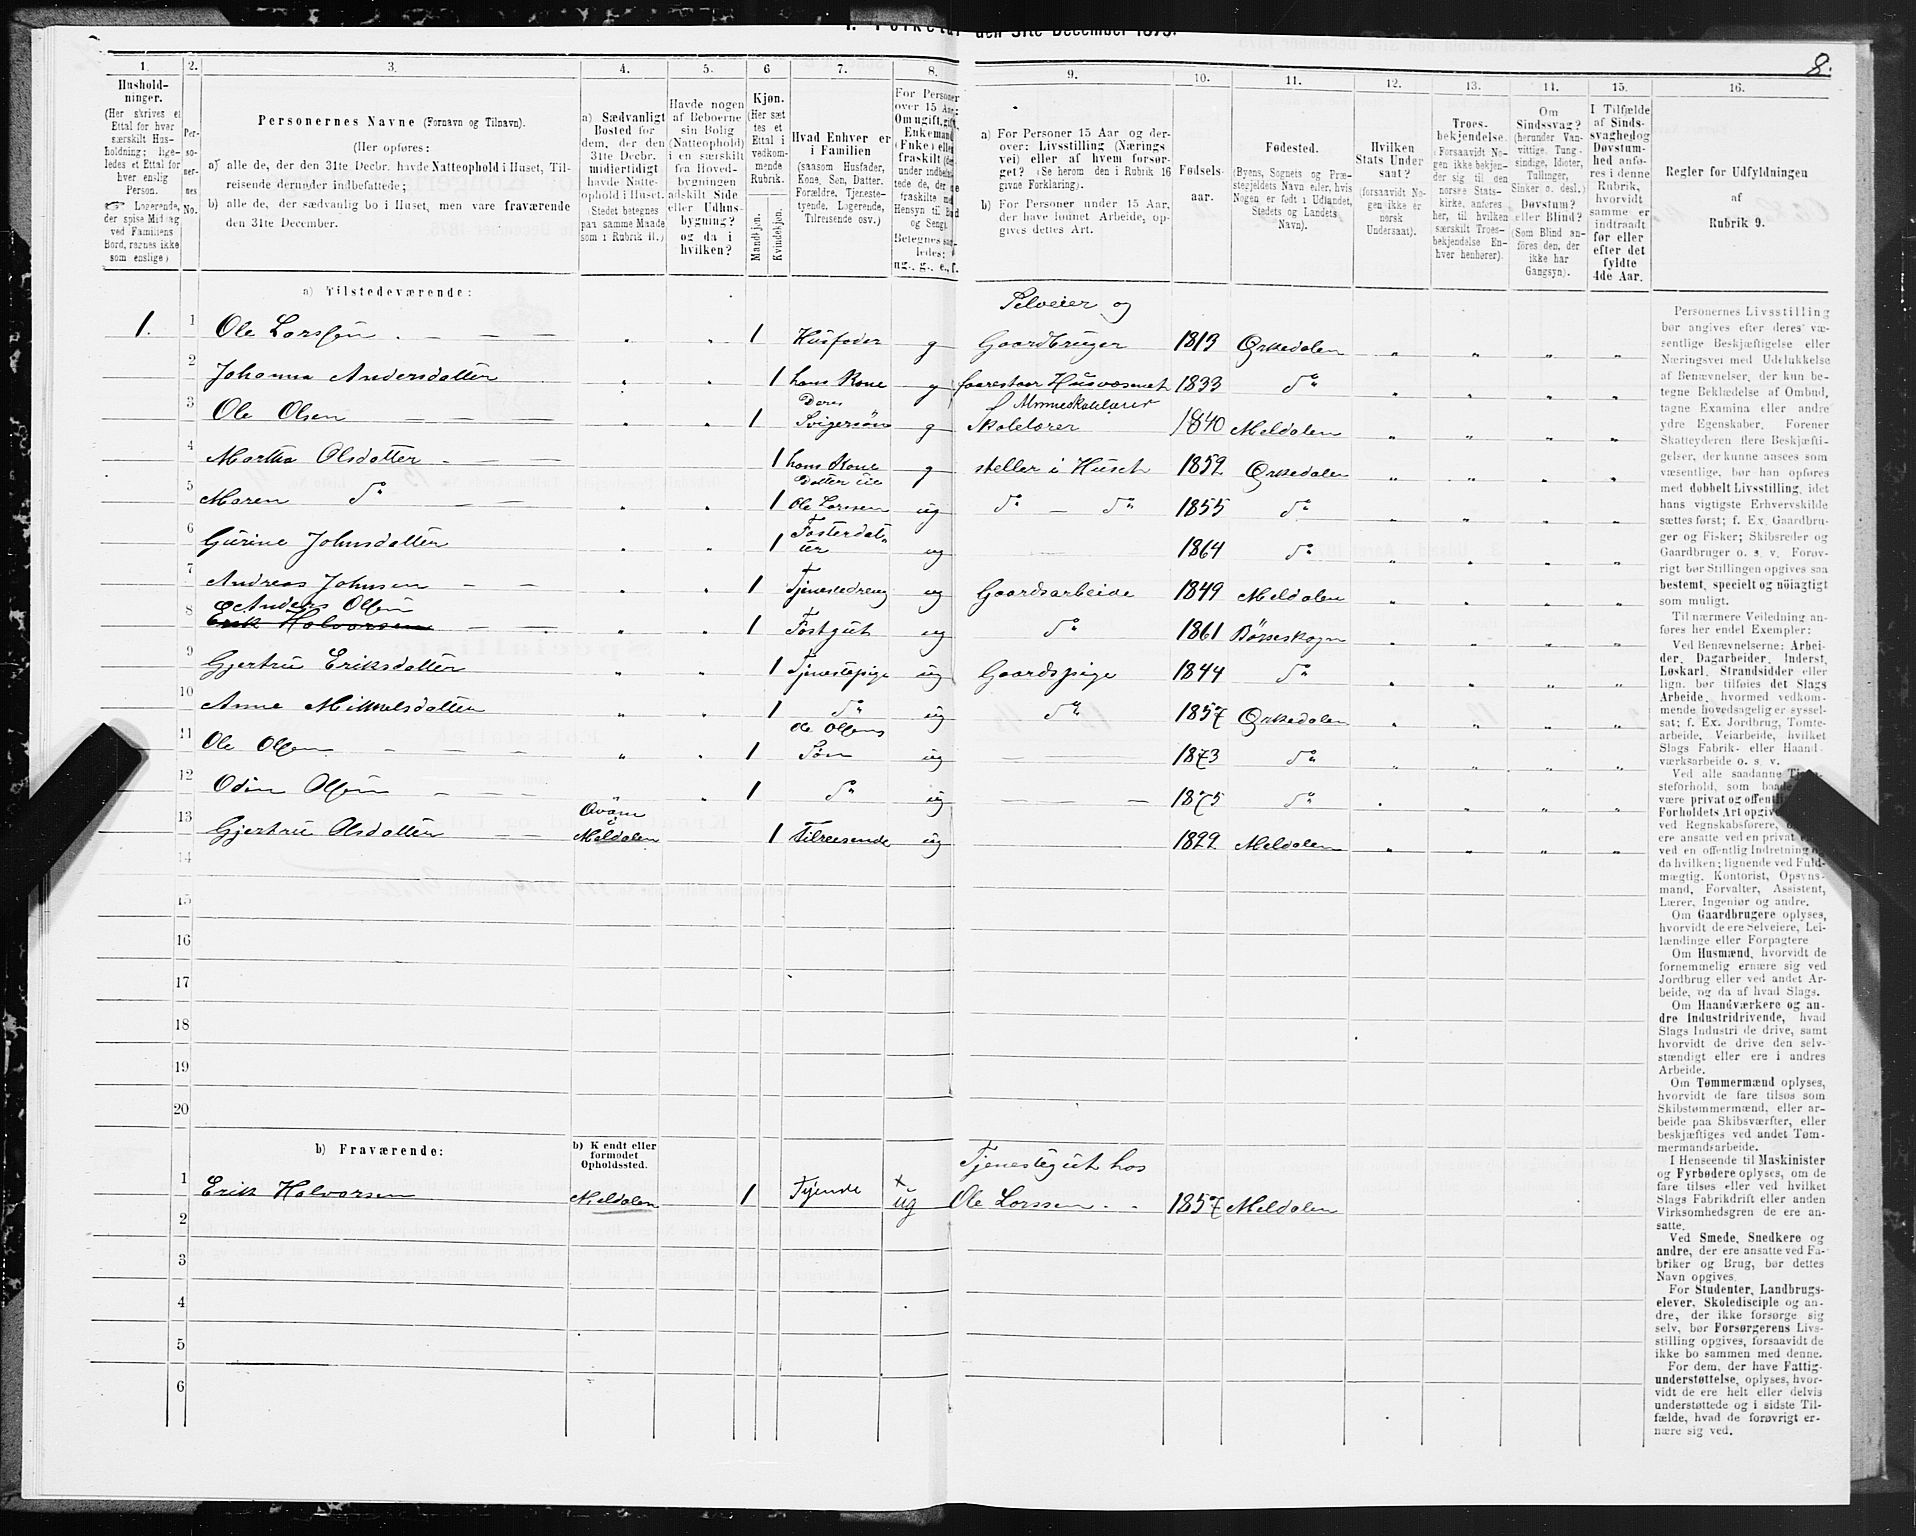 1. Folketal den 31te December 1875.
8.
1. 2. 3. 4. 5. 6 7. 8. 9. 10. 11. 12. 13. 14. 15. 16.
Hushold-
ninger.
(Her skrives et
Ettal for hver
særskilt Hus-
holdning; lige-
ledes et Ettal for
hver enslig
Person.
☞ Logerende,
der spise Middag
ved Familiens
Bord, regnes ikke
som enslige)
Per-
so-
ner-
nes
No.
Personernes Navne (Fornavn og Tilnavn).
(Her opføres:
a) alle de, der den 31te Decbr. havde Natteophold i Huset, Til-
reisende derunder indbefattede;
b) alle de, der sædvanlig bo i Huset, men vare fraværende
den 31te December.
a) Sædvanligt
Bosted for
dem, der den
31te Decbr.
midlertidigt
havde Natte-
ophold i Huset.
(Stedet betegnes
paa samme Maade
som i Rubrik 11.)
Havde nogen
af Beboerne
sin Bolig
(Natteophold)
i en særskilt
fra Hoved-
bygningen
adskilt Side
eller Udhus-
bygning?
og da i
hvilken?
Kjøn.
(Her sæt-
tes et
Ettal i
vedkom-
mende
Rubrik.
Mandkjøn.
Kvindekjøn.
Hvad Enhver er
i Familien
(saasom Husfader,
Kone, Søn, Datter,
Forældre, Tjeneste-
tyende, Logerende,
Tilreisende osv.)
For Personer
over 15 Aar:
Om ugift, gift,
Enkemand
(Enke) eller
fraskilt (der-
under indbefat-
tede de, der ere
fraskilte med
Hensyn til Bord
og Seng).
Betegnes saa-
ledes:
ug., g., e., f.
a) For Personer 15 Aar og der-
over: Livsstilling (Nærings-
vei) eller af hvem forsør-
get? (Se herom den i Rubrik 16
givne Forklaring).
b) For Personer under 15 Aar,
der have lønnet Arbeide, op-
gives dettes Art.
Fødsels-
aar.
Fødested.
(Byens, Sognets og Præ-
stegjeldets Navn eller, hvis
Nogen er født i Udlandet,
Stedets og Landets
Navn).
Hvilken
Stats Under-
saat?
(forsaavidt No-
gen ikke er
norsk
Undersaat).
Troes-
bekjendelse.
(Forsaavidt No-
gen ikke bekjen-
der sig til den
norske Stats-
kirke, anføres
her, til hvilken
særskilt Troes-
bekjendelse En-
hver henhører).
Om
Sindssvag?
(herunder Van-
vittige, Tung-
sindige, Idioter,
Tullinger,
Sinker o. desl.)
Døvstum?
eller Blind?
(Som Blind an-
føres den, der
ikke har
Gangsyn).
I Tilfælde
af Sinds-
svaghed og
Døvstum-
hed anfø-
res i denne
Rubrik,
hvorvidt
samme er
indtraadt
før eller
efter det
fyldte
4de Aar.
Regler for Udfyldningen
af
Rubrik 9.
a) Tilstedeværende:
1. 1 Ole Larssen - - - „ „ 1 Husfader g Selveier og
Gaardbruger 1813 Ørkedalen „ „ „ „
2 Johanna Andersdatter „ „ 1 hans Kone g forestaar Husvæsenet 1833 d° „ „ „ „
3 Ole Olsen - - - „ „ 1 Deres
Svigersøn g
Skolelærer 1840 Meldalen „ „ „ „
4 Martha Olsdatter - - „ „ 1 hans Kone g steller i Huset 1852 Ørkedalen „ „ „ „
5 Maren d° - - „ „ 1 Datter til
Ole Larssen ug d° - d° 1855 d° „ „ „ „
6 Gurine Johnsdatter „ „ 1 Fosterdat-
ter ug 1864 d° „ „ „ „
7 Andreas Johnsen - - „ „ 1 Tjenestedreng ug Gaardsarbeide 1849 Meldalen „ „ „ „
Anders Olsen
8 Erik Halvorsen - - „ „ 1 Fostgut ug d° 1861 Børseskogn „ „ „ „
9 Gjertru Eriksdatter „ „ 1 Tjenestepige ug Gaardspige 1844 d° „ „ „ „
10 Anne Mikkelsdatter „ „ 1 d° ug d° 1857 Ørkedalen „ „ „ „
11 Ole Olsen - - - „ „ 1 Ole Olsens
Søn ug - 1873 d° „ „ „ „
12 Odin Olsen - - - „ „ 1 d° ug - - - 1875 d° „ „ „ „
13 Gjertru Olsdatter - - Meldalen 1 Tilreisende ug 1822 Meldalen „ „ „ „
14
15
16
17
18
19
20
b) Fraværende:
b) Kendt eller
formodet
Opholdssted.
1 Erik Halvorsen Meldalen 1 Tyende ug Tjenestegut hos
Ole Larssen 1857 Meldalen
2
3
4
5
6
Personernes Livsstilling
bør angives efter deres væ-
sentlige Beskjæftigelse eller
Næringsvei med Udelukkelse
af Benævnelser, der kun be-
tegne Beklædelse af Ombud,
tagne Examina eller andre
ydre Egenskaber. Forener
Skatteyderen flere Beskjæfti-
gelser, der kunne ansees som
væsentlige, bør han opføres
med dobbelt Livsstilling, idet
hans vigtigste Erhvervskilde
sættes først; f. Ex. Gaardbru-
ger og Fisker; Skibsreder og
Gaardbruger o. s. v. Forøv-
rigt bør Stillingen opgives saa
bestemt, specielt og nöiagtigt
som muligt.
Til nærmere Veiledning an-
føres her endel Exempler:
Ved Benævnelserne: Arbei-
der, Dagarbeider, Inderst,
Løskarl, Strandsidder eller
lign. bør tilføies det Slags
Arbeide, hvormed vedkom-
mende hovedsagelig er syssel-
sat; f. Ex. Jordbrug, Tomte-
arbeide, Veiarbeide, hvilket
Slags Fabrik- eller Haand-
værksarbeide o. s. v.
Ved alle saadanne Tjene-
steforhold, som baade
være privat og offentlig,
Forholdets Art opgives,
ved Regnskabsførere,
ere ansatte ved en privat
ved en offentlig Indretning og
da hvilken; lignende ved Fuld-
mægtig, Kontorist, Opsyns-
mand, Forvalter, Assistent,
Lærer, Ingeniør og andre.
Om Gaardbrugere oplyses,
hvorvidt de ere Selveiere, Lei-
lændinge eller Forpagtere
Om Husmænd, hvorvidt de
fornemmelig ernære sig ved
Jordbrug eller ved andet Ar-
beide, og da af hvad Slags.
Om Haandværkere og an-
dre Industridrivende, hvad
Slags Industri de drive, samt
hvorvidt de drive den selv-
stændigt eller ere i andres
Arbeide.
Om Tømmermænd oplyses,
hvorvidt de fare tilsøs som
Skibstømmermænd, eller ar-
beide paa Skibsværfter, eller
beskjæftiges ved andet Tøm-
mermandsarbeide.
I Henseende til Maskinister
og Fyrbødere oplyses, om de
fare tilsøs eller ved hvilket
Slags Fabrikdrift eller anden
Virksomhedsgren de ere an-
satte.
Ved Smede, Snedkere og
andre, der ere ansatte ved Fa-
briker og Brug, bør dettes
Navn opgives.
For Studenter, Landbrugs-
elever, Skoledisciple og an-
dre, der ikke forsørge sig
selv, bør Forsørgerens Livs-
stilling opgives, forsaavidt de
ikke bo sammen med denne.
For dem, der have Fattig-
understøttelse, oplyses, hvor-
vidt de ere helt eller delvis
understøttede og i sidste Til-
fælde, hvad de forøvrigt er-
nære sig ved.